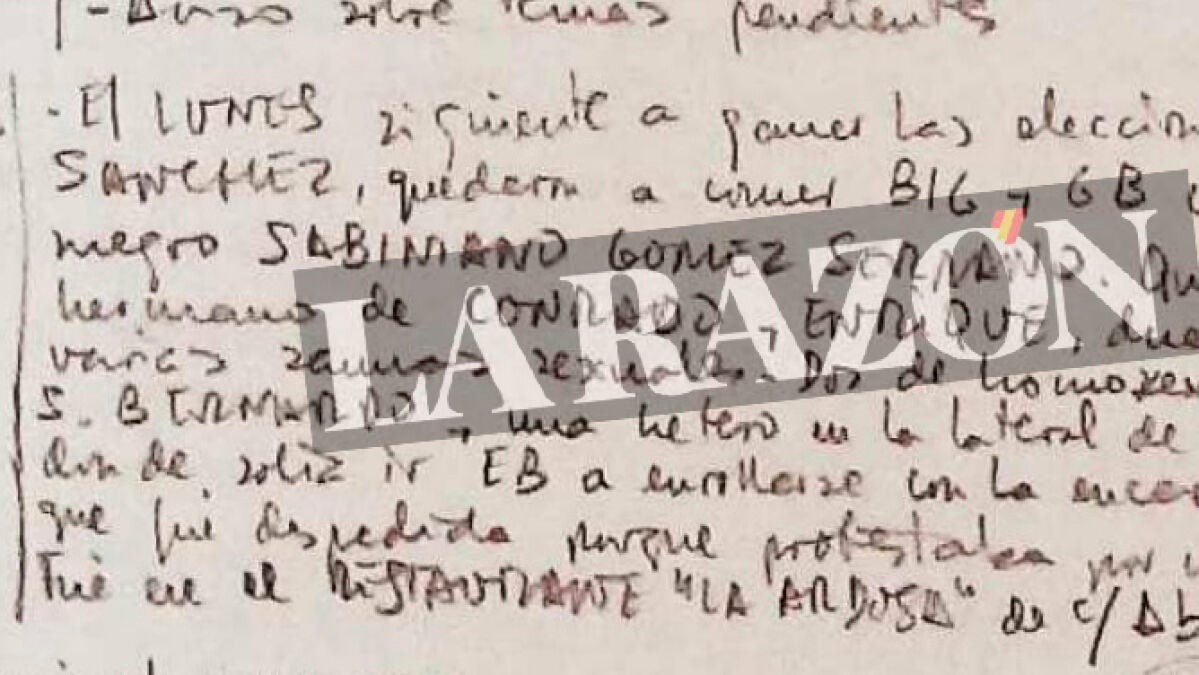 - Aviso sobre temas pendientes
- El LUNES siguiente a ganar las eleccion
SANCHEZ, quedaron a comer BIG y GB
negro SABINIANO GOMEZ SERRANO. Qu
hermano de CONRADO y ENRIQUE, due
varias saunas sexuales. Dos de homosex
S. BERNARDO y una hetero en la lateral de
donde solía ir EB a enrollarse con la enca
que fué despedida porque protestaba por
Fué en el RESTAURANTE "LA ARDOSA" de c/
LA RAZÓN